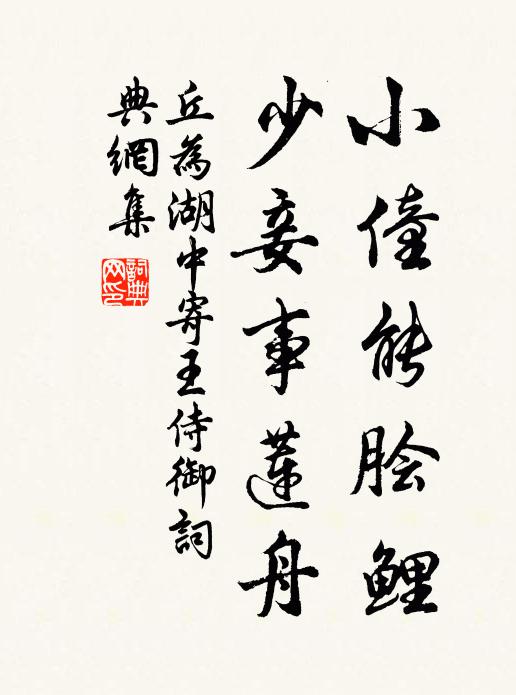 小僮能脍鲤
少妾事莲舟
丘為湖中寄王侍御詞
典網集
詞典
网印